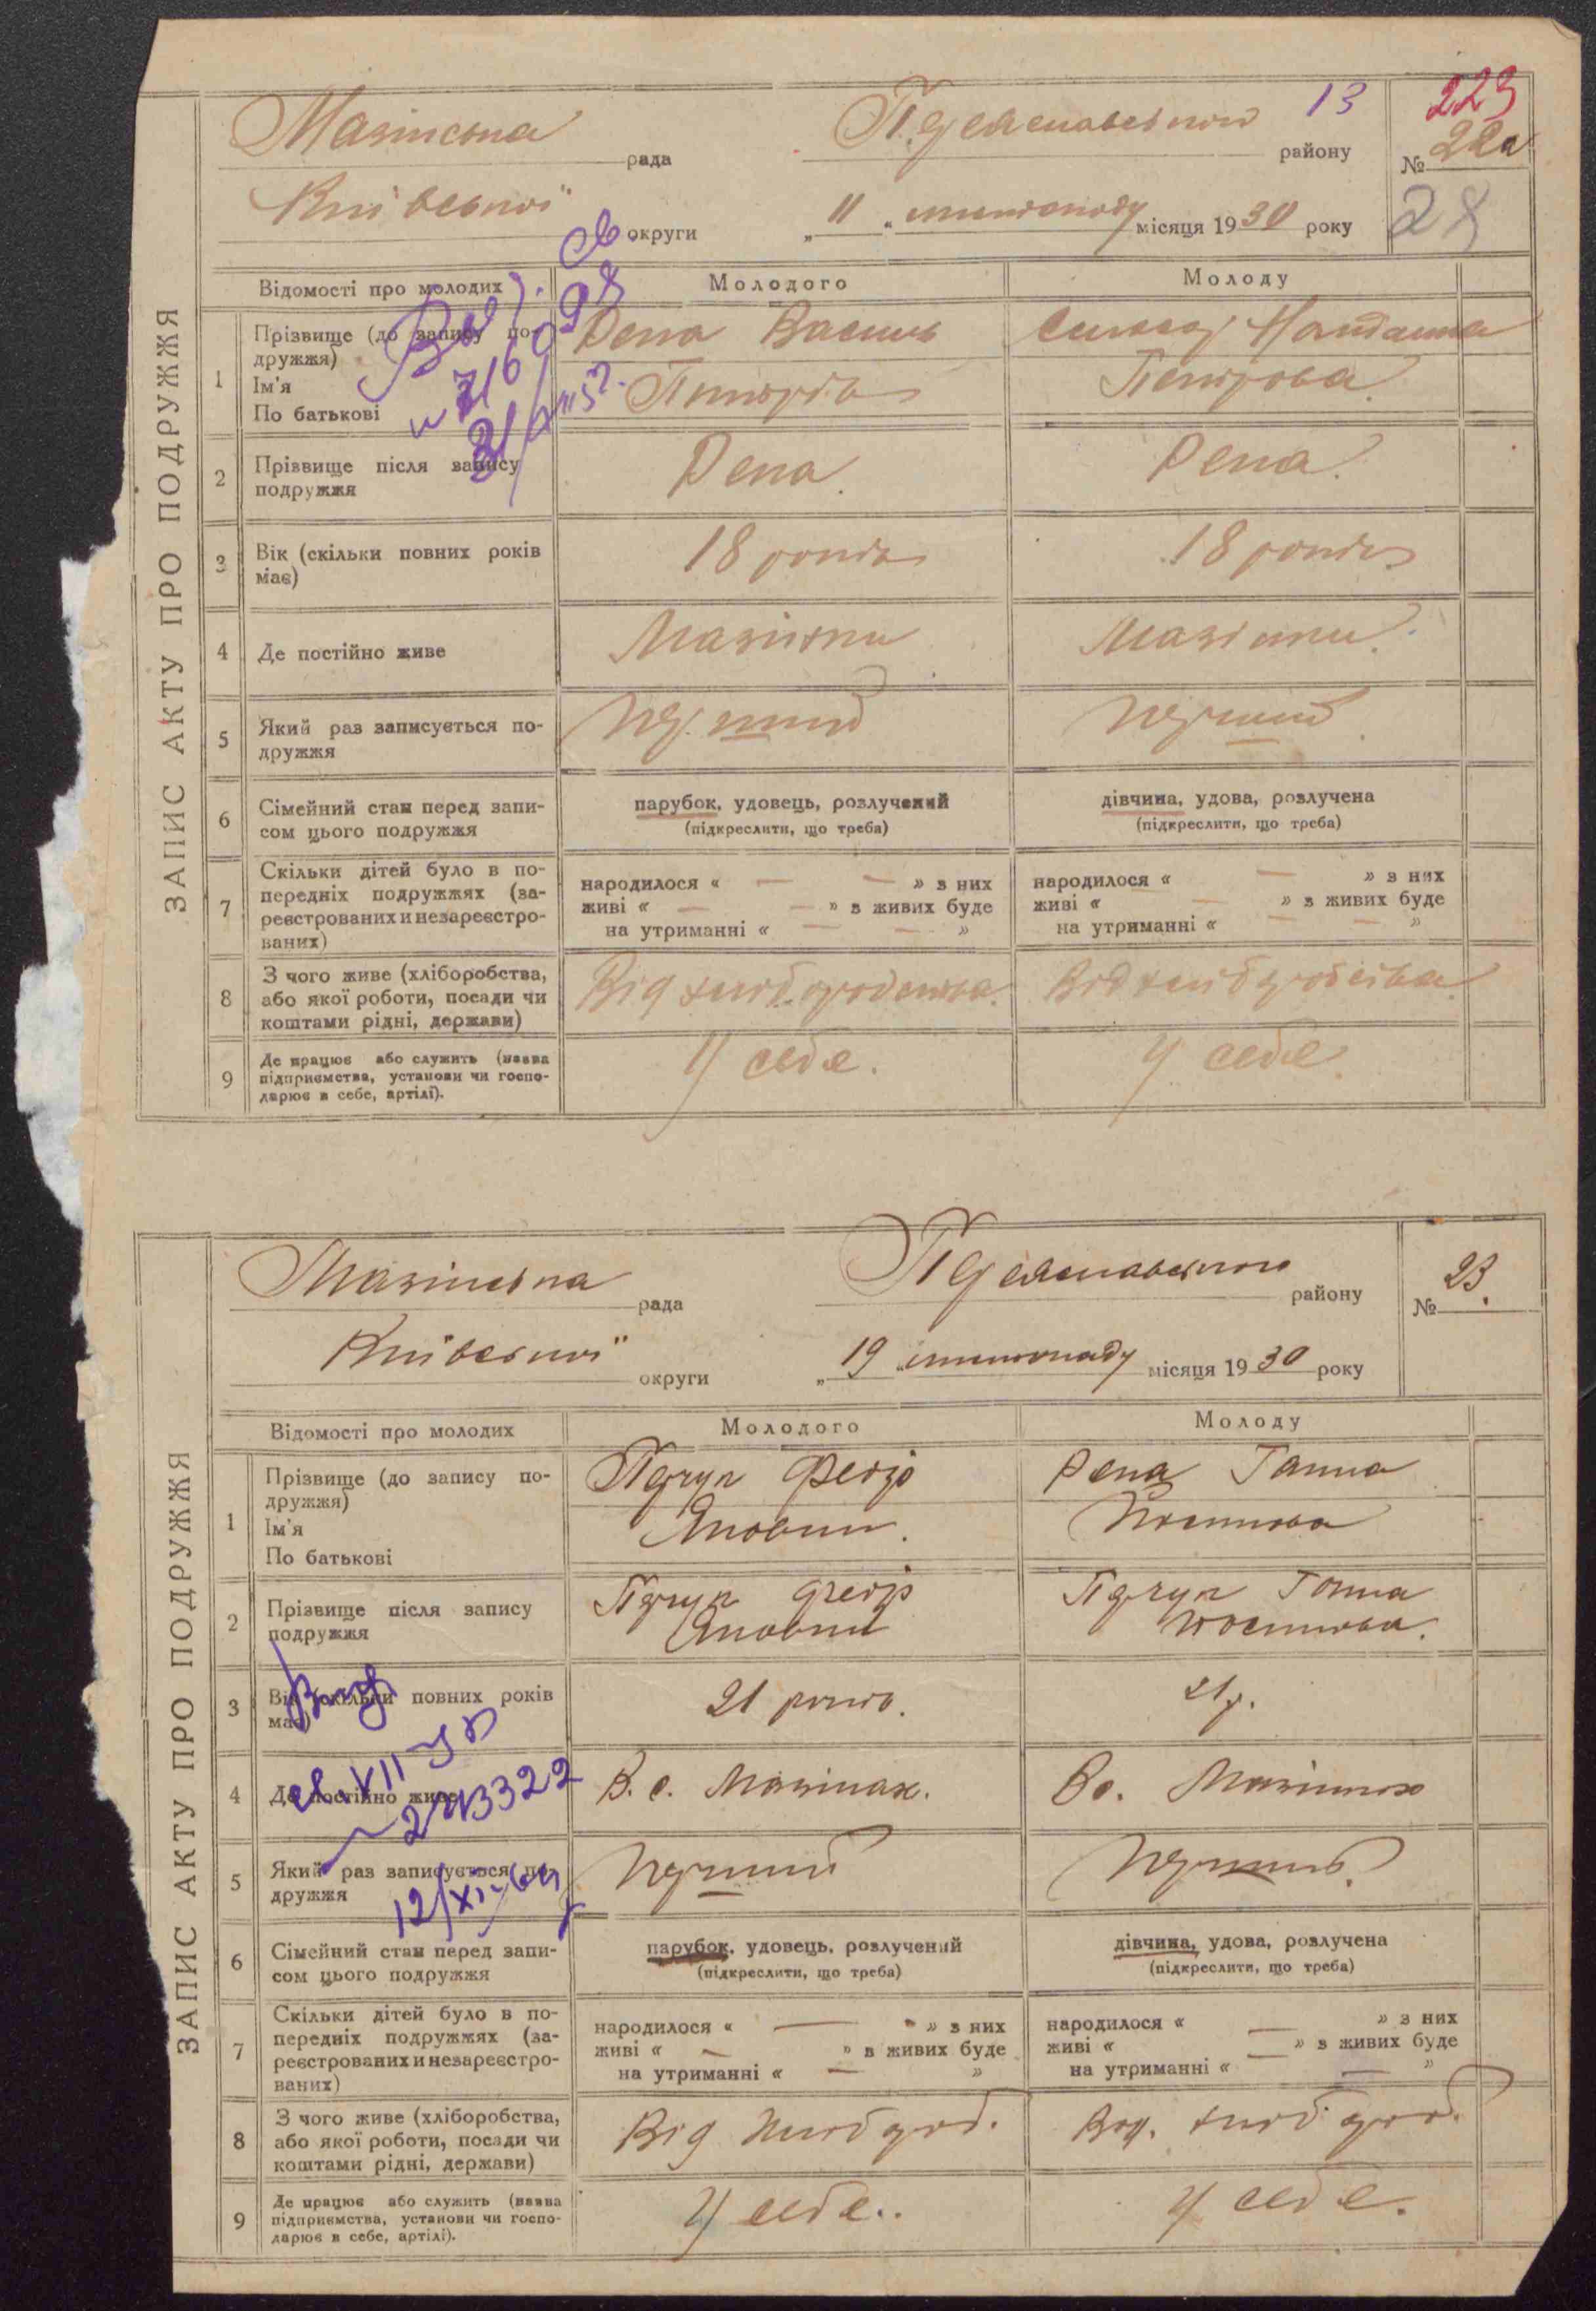 13
223
рада
району
№ 22а
28
Київської
округи
„ 11 “ листопаду місяця 1930 року
ЗАПИС АКТУ ПРО ПОДРУЖЖЯ
Відомості про молодих
Молодого
Молоду
1
Прізвище (до запису по-
дружжя)
Ім'я
По батькові
Репа Василь
Петрова
2
Прізвище після запису
подружжя
Репа
Репа.
3
Вік (скільки повних років
має)
18 років
18 років
4
Де постійно живе
Мазінки
Мазінки.
5
Який раз записується по-
дружжя
перший
перший.
6
Сімейний стан перед запи-
сом цього подружжя
парубок, удовець, розлучений
(підкреслити, що треба)
дівчина, удова, розлучена
(підкреслити, що треба)
7
Скільки дітей було в по-
передніх подружжях (за-
реєстрованих и незареєстро-
ваних)
народилося « — — » з них
живі « — — » в живих буде
на утриманні « — — »
народилося « — » з них
живі « — » з живих буде
на утриманні « — — »
8
З чого живе (хліборобства,
або якої роботи, посади чи
коштами рідні, держави)
Від хліборобства.
Від хліборобства.
9
Де працює або служить (назва
підприємства, установи чи госпо-
дарює в себе, артілі).
У себе.
У себе.
рада
району
№ 23.
Київської
округи
„ 19 “ листопаду місяця 1930 року
ЗАПИС АКТУ ПРО ПОДРУЖЖЯ
Відомості про молодих
Молодого
Молоду
1
Прізвище (до запису по-
дружжя)
Ім'я
По батькові
Федір
Якович.
Репа Ганна
2
Прізвище після запису
подружжя
Федір
Якович
Ганна
3
Вік (скільки повних років
має)
21 років.
21 р.
4
Де постійно живе
В. с. Мазінках.
Вс. Мазінках
243322
5
Який раз записується по-
дружжя
12/XI-64
перший
перший.
6
Сімейний стан перед запи-
сом цього подружжя
парубок, удовець, розлучений
(підкреслити, що треба)
дівчина, удова, розлучена
(підкреслити, що треба)
7
Скільки дітей було в по-
передніх подружжях (за-
реєстрованих и незареєстро-
ваних)
народилося « — » з них
живі « — » в живих буде
на утриманні « — »
народилося « — » з них
живі « — » з живих буде
на утриманні « — »
8
З чого живе (хліборобства,
або якої роботи, посади чи
коштами рідні, держави)
Від хліброб.
Від. хліброб.
9
Де працює або служить (назва
підприємства, установи чи госпо-
дарює в себе, артілі).
У себе..
У себе.